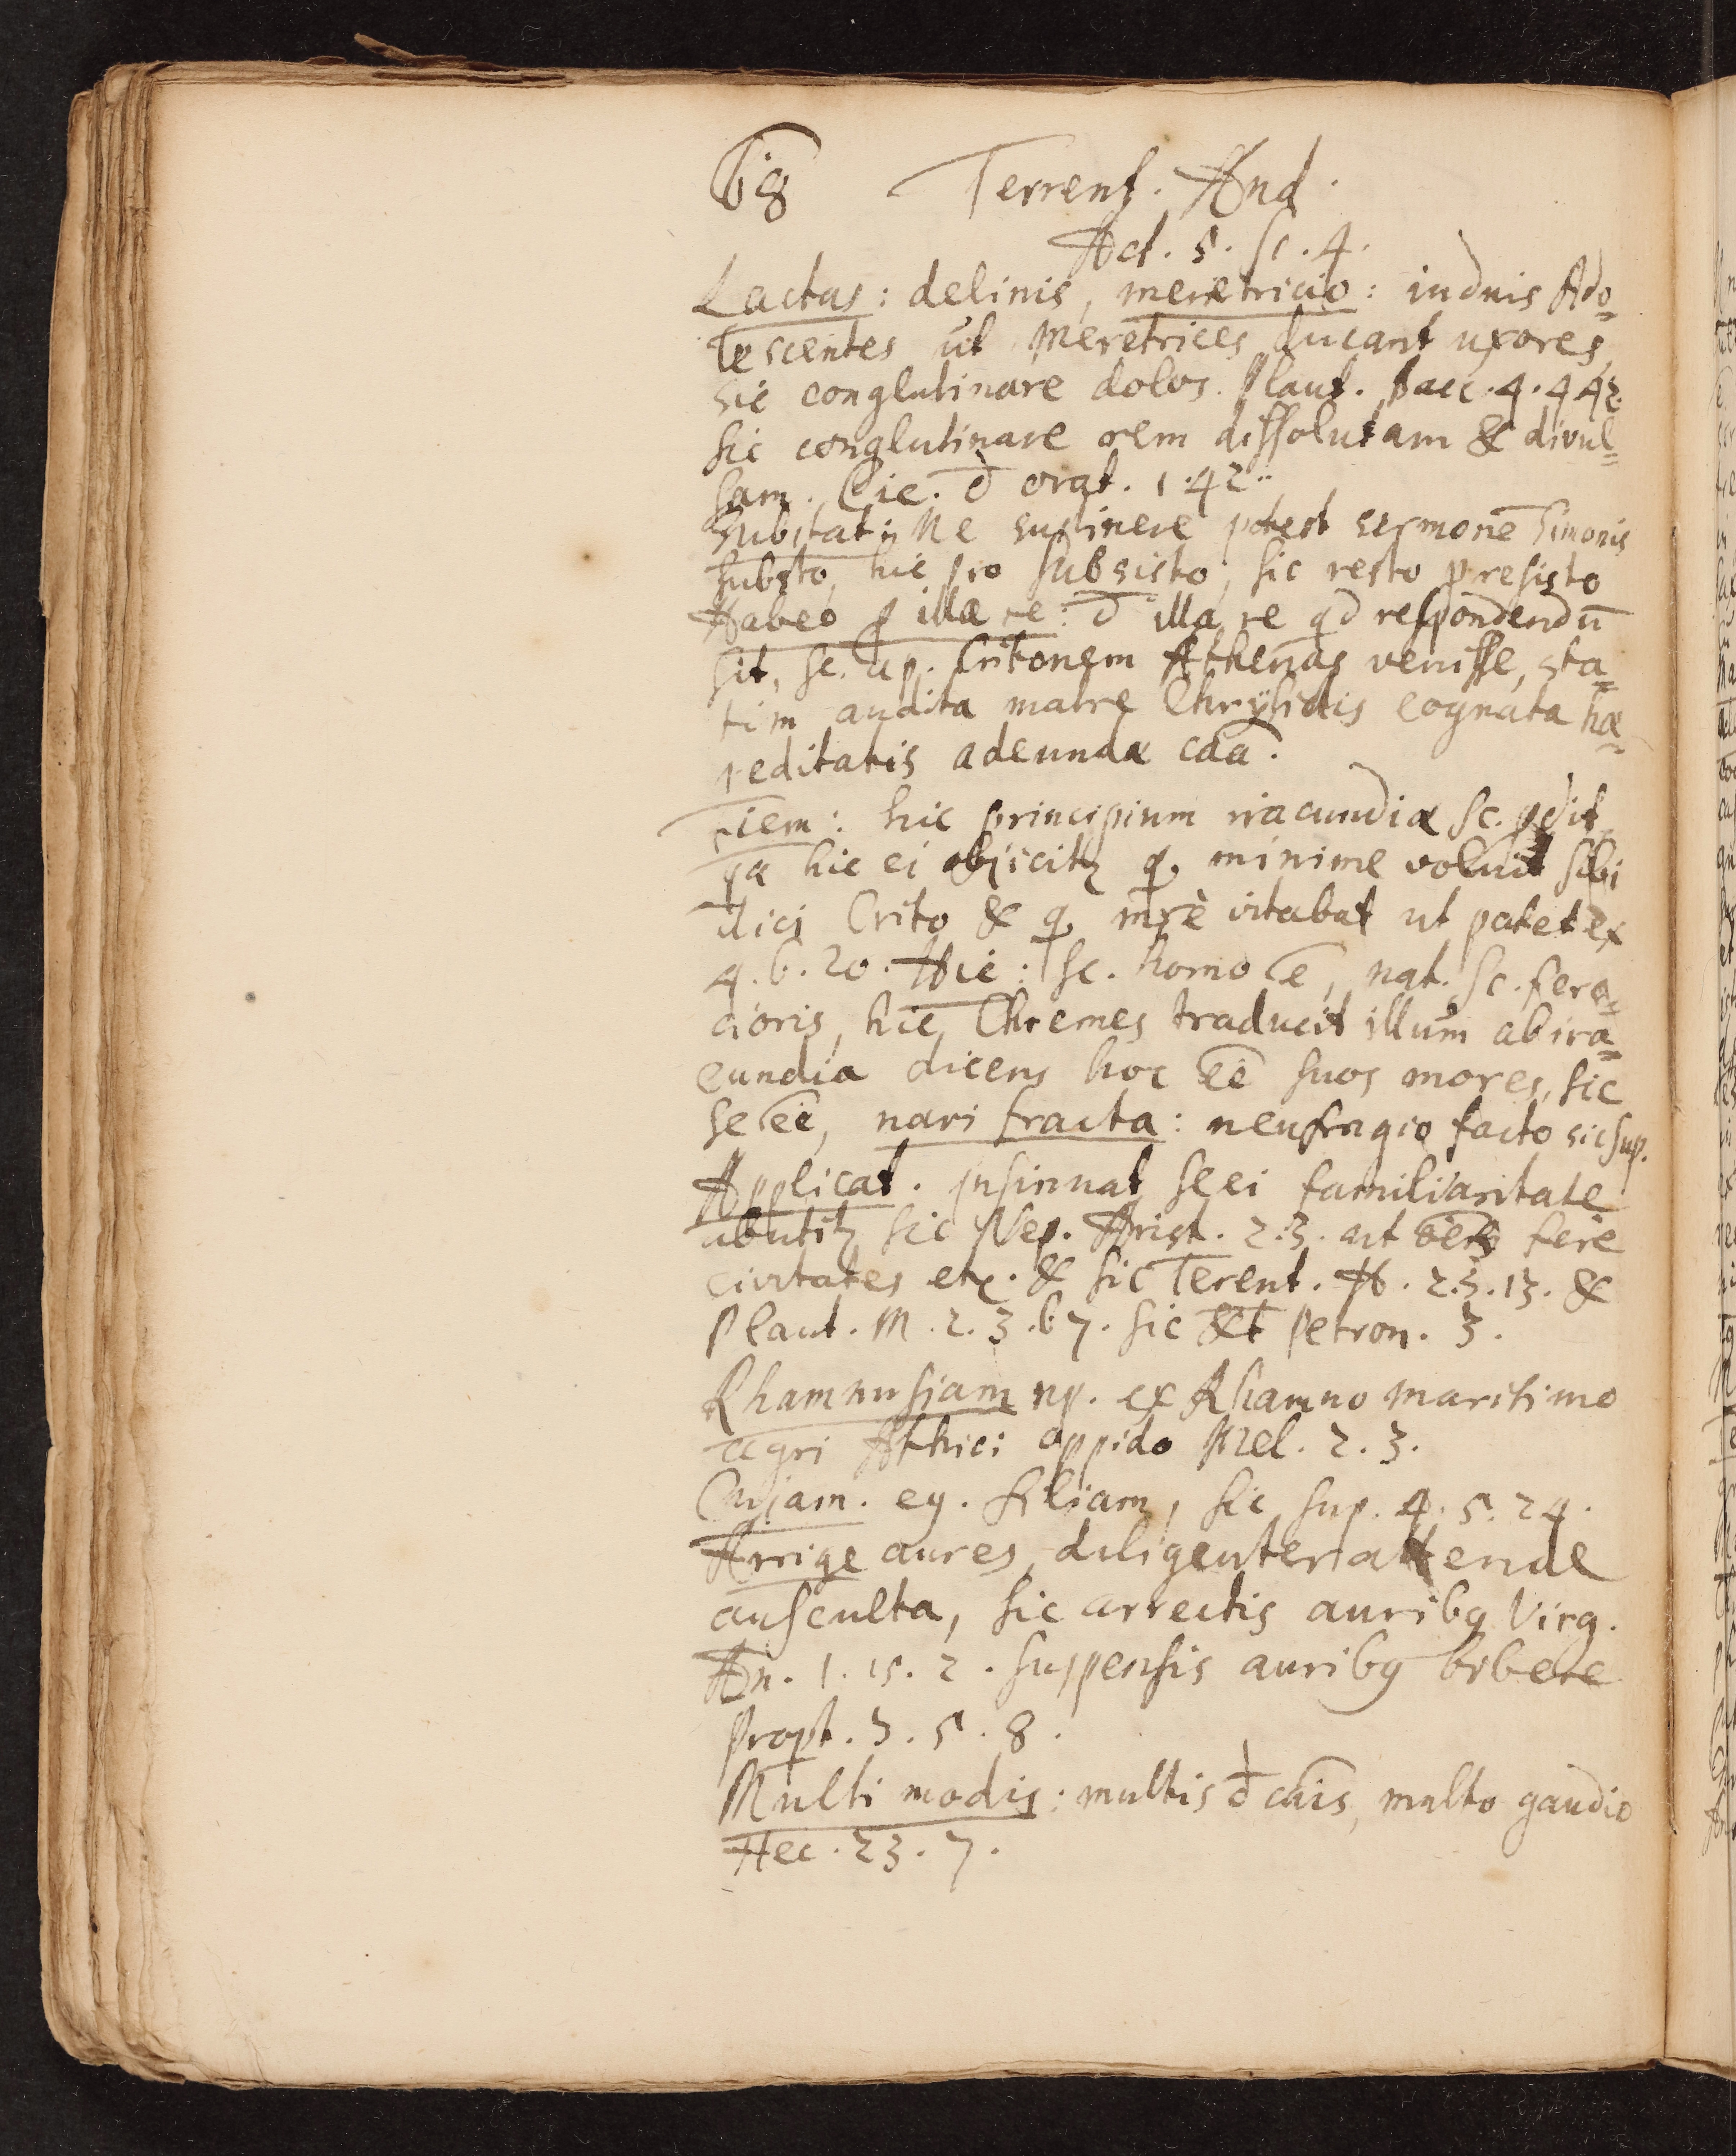 68 Terrent. And.
Act. 5. Sc. 4.
Lactas: delinis, meretricio: induis Ado=
lescentes ut Meretrices ducant uxores,
sic conglutinare dolos. Plaut. Bacc. 4. 4 42.
sic conglutinare rem dissolutam & divul=
sam. Cic. d orat. 1. 42.
Substat: Ne sustinere potest sermonē Simonis
substo, hic pro subsisto, sic resto p resisto
Habeo p illa re: d illa re qd respondendū
sit, sc. ap. Critonem Athenas venisse, sta=
tim audita matre Chrÿsidis cognata hæ=
reditatis adeundæ cāā.
hic principium iracundiæ sc. pdit
qa hic ei objicitr q minime voluit sibi
dici Crito & q mrè vitabat ut patet ex
4. 6. 20. Hic: sc. homo ē, nat. sc. fero=
cioris, hic Chremes traducit illum ab ira=
cundia dicens hoc eē suos mores, sic
se eē, navi fracta: neufragio facto sic sup.
Applicat. insinuat se ei familiaritate
abutitr sic Nep. Arist. 2. 3. ut fere
civitates etc. & sic Terent. H. 2. 3. 13. &
Plaut. M. 2. 3. 67. sic & Petron. 3.
Rhamnusiam np. ex Rhamno maritimo
agri Atthici oppido Mel. 2. 3.
Cujam. eg. filiam, sic sup. 4. 5. 24.
Arrige aures, diligenter attende
ausculta, sic arrectis auribq Virg.
Æn. 1. 15. 2. suspensis auribq bibere
Propt. 3. 5. 8.
Multi modis: multis d cāis, multo gaudio
Hec. 23. 7.